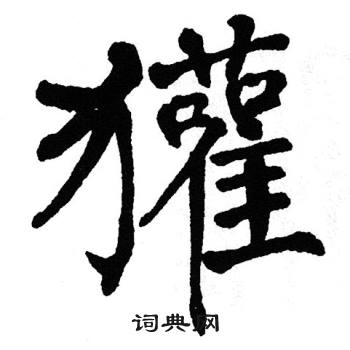 獾
词典网